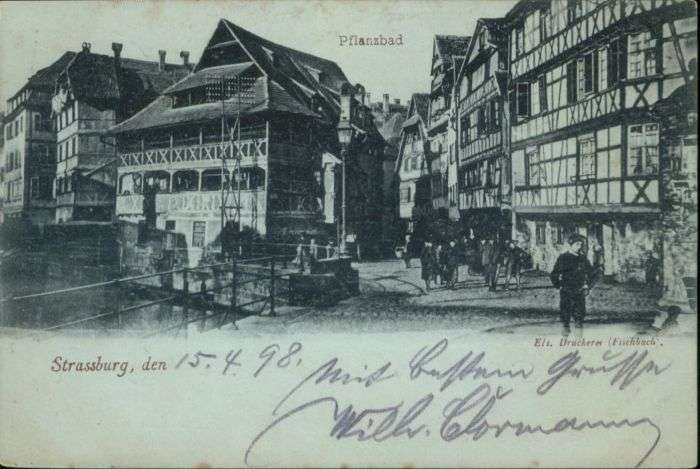 Pflanzbad
Els. Druckerei (Fischbach).
Strassburg, den 15. 4. 98.
Mit bestem Grusse
Wilh. Bormann